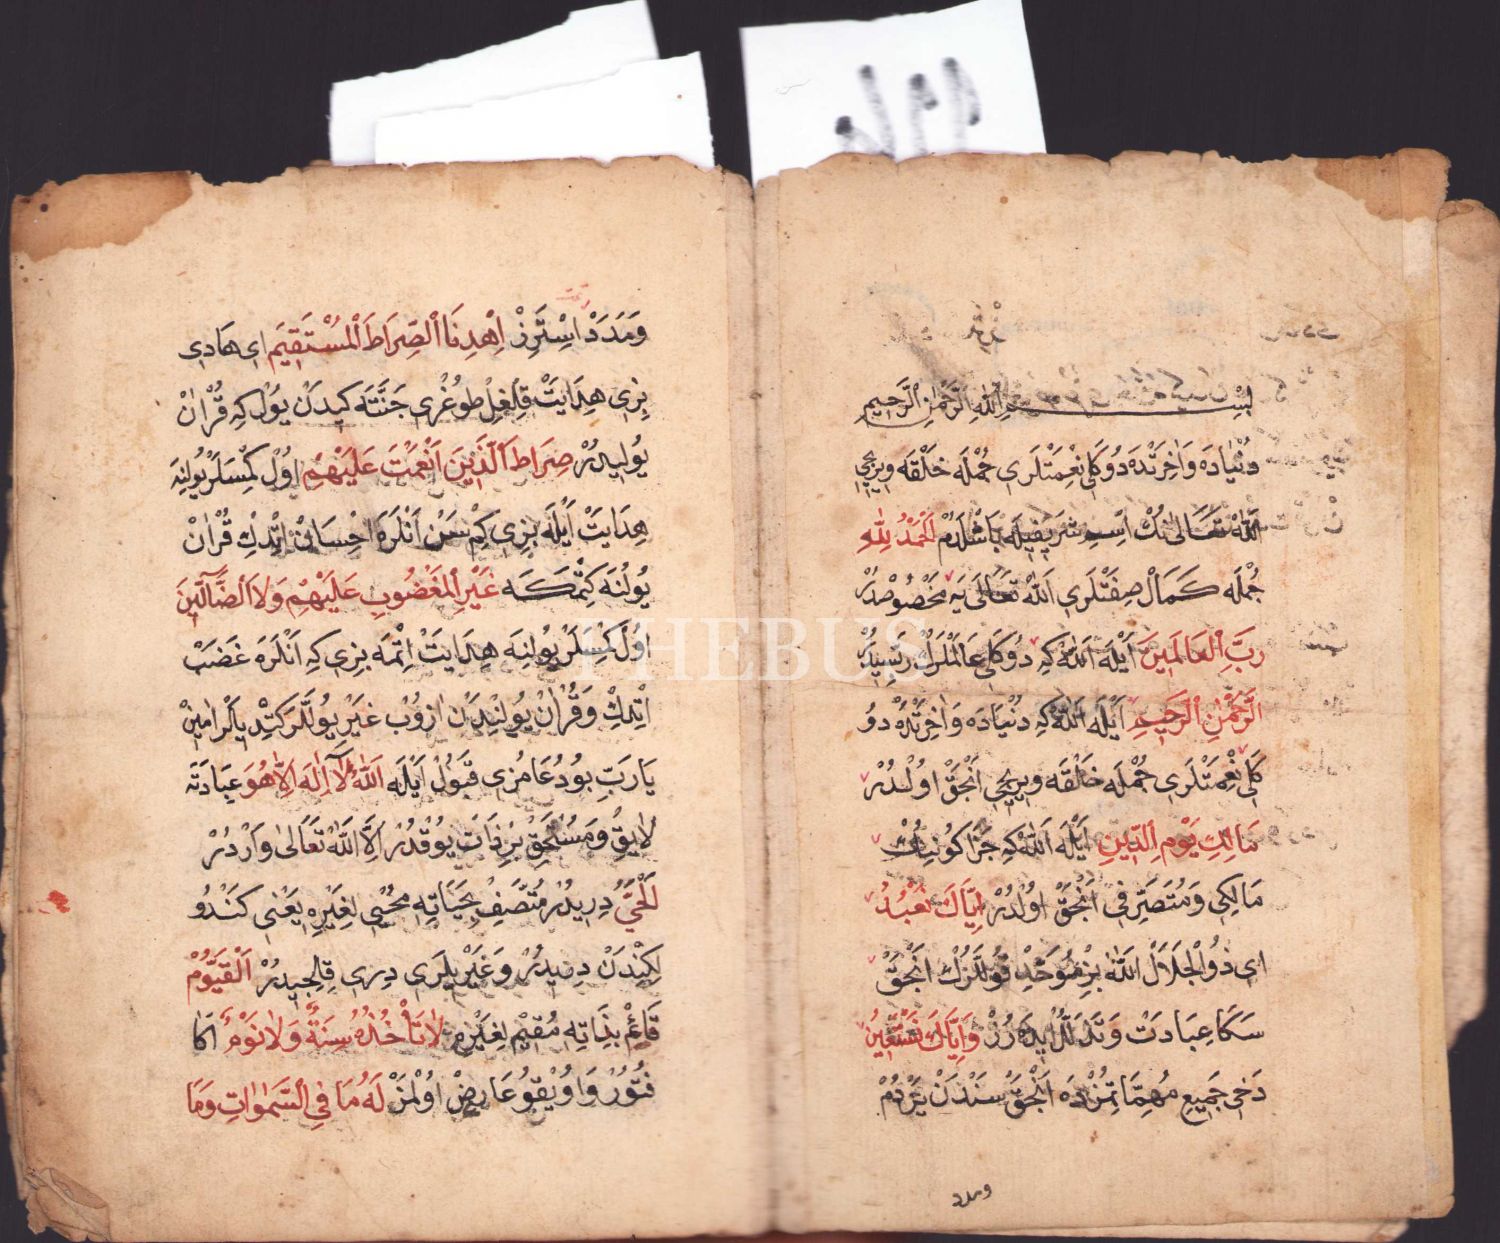 بِسْمِ اللّٰهِ الرَّحْمٰنِ الرَّحِيمِ
دُنْيَادَه وَاٰخِرَتْدَه دُوكَلِي نِعْمَتْلَرِي جُمْلَه خَلْقَه وِيرِيجِي
اَللّٰه تَعَالٰى نُكْ اسمِ شَرِيفِيلَه بَاشْلَدُمْ اَلْحَمْدُ لِلّٰهِ
جُمْلَه كَمَالْ صِفَتْلَرِي اَللّٰه تَعَالٰى يَه مَخْصُوصْدُرْ
رَبِّ الْعَالَمِينَ اَيْلَه اَللّٰه كِه دُوكَلِي عَالَمْلَرِكْ رَبِّيدُرْ
اَلرَّحْمٰنِ الرَّحِيمِ اَيْلَه اَللّٰه كِه دُنْيَادَه وَاٰخِرَتْدَه دُو
كَلِي نِعْمَتْلَرِي جُمْلَه خَلْقَه وِيرِيجِي اَنْجَقْ اولْدُرْ
مَالِكِ يَوْمِ الدِّينِ اَيْلَه اَللّٰه كِه جَزَا كُونِينُكْ
مَالِكِي وَمُتَصَرِّفِي اَنْجَقْ اوُلْدُرْ اِيَّاكَ نَعْبُدُ
اى ذُو الْجَلَالْ اَللّٰه بِزْ مُوَحِّدْ قُوللَّرُكْ اَنْجَقْ
سَكَا عِبَادَتْ وَتَذَلُّلْ ايدَه رُزْ وَاِيَّاكَ نَسْتَعِينُ
دَخِى جَمِيعِ مُهِمَّاتِمُزْدَه اَنْجَقْ سَنْدَنْ يَرْدُمْ
ومدد
وَمَدَدْ اسْتَرِزْ اِهْدِنَا الصِّرَاطَ الْمُسْتَقِيمَ اى هَادِى
بِزِى هِدَايَتْ قِلْغِلْ طُوغْرِى جَنَّتَه كِيدَنْ يُولْ كِه قُرْاٰنْ
يُولِيدُرْ صِرَاطَ الَّذِينَ اَنْعَمْتَ عَلَيْهِمْ اوُلْ كِمْسَلَرْ يُولِنَه
هِدَايَتْ اَيْلَه بِزِى كِمْ سَنْ اَنْلَرَه اِحْسَانْ اِتْدِكْ قُرْاٰنْ
يُولُنَه كِتْمَكَه غَيْرِ الْمَغْضُوبِ عَلَيْهِمْ وَلَا الضَّالِّينَ
اوُلْ كِمْسَلَرْ يُولِنَه هِدَايَتْ اِتْمَه بِزِى كِه اَنْلَرَه غَضَبْ
اِتْدِكْ وَقُرْاٰنْ يُولِنْدَنْ اَزُوبْ غَيْرِ يُوللَّرَ كِتْدِيلَرْ اٰمِينْ
يَا رَبِّ بُو دُعَامُزِى قَبُولْ اَيْلَه اَللّٰهُ لَا اِلٰهَ اِلَّا هُوَ عِبَادَتَه
لَايِقْ وَمُسْتَحِقْ بِرْ ذَاتْ يُوقْدُرْ اِلَّا اللّٰهْ تَعَالٰى وَارْدُرْ
اَلْحَيُّ دِرِيدُرْ مُتَّصِفْ بِحَيَاتِه مُحْيِى لِغَيْرِه يَعْنِى كَنْدُو
لِكِنْدَنْ دِرِيدُرْ وَغَيْرِيلَرِى دِرِى قِلِيجِيدُرْ اَلْقَيُّومُ
قَائِمْ بِذَاتِه مُقِيمْ لِغَيْرِه لَا تَأْخُذُهُ سِنَةٌ وَلَا نَوْمٌ اَكَا
فُتُورْ وَاوُيْقُو عَارِضْ اوُلْمَزْ لَهُ مَا فِي السَّمٰوَاتِ وَمَا
PHEBUS